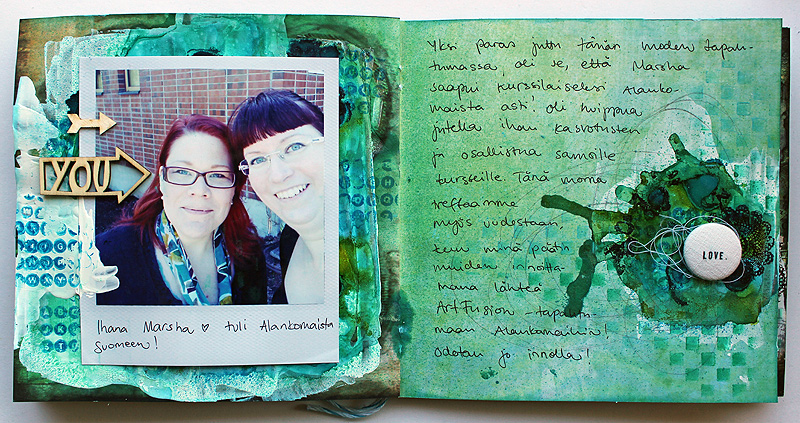 YOU
Ihana Marsha ♡ tuli Alankomaista
Suomeen!
Yksi paras juttu tämän vuoden tapah-
tumassa, oli se, että Marsha
saapui kurssilaiseksi Alanko-
maista asti! Oli huippua
jutella ihan kasvotusten
ja osallistua samoille
kursseille. Tänä vuonna
treffaamme
myös uudestaan,
kun minä päätin
muiden innoitta-
mana lähteä
ArtFusion -tapahtu-
maan Alankomaihin!
Odotan jo innolla!
LOVE.